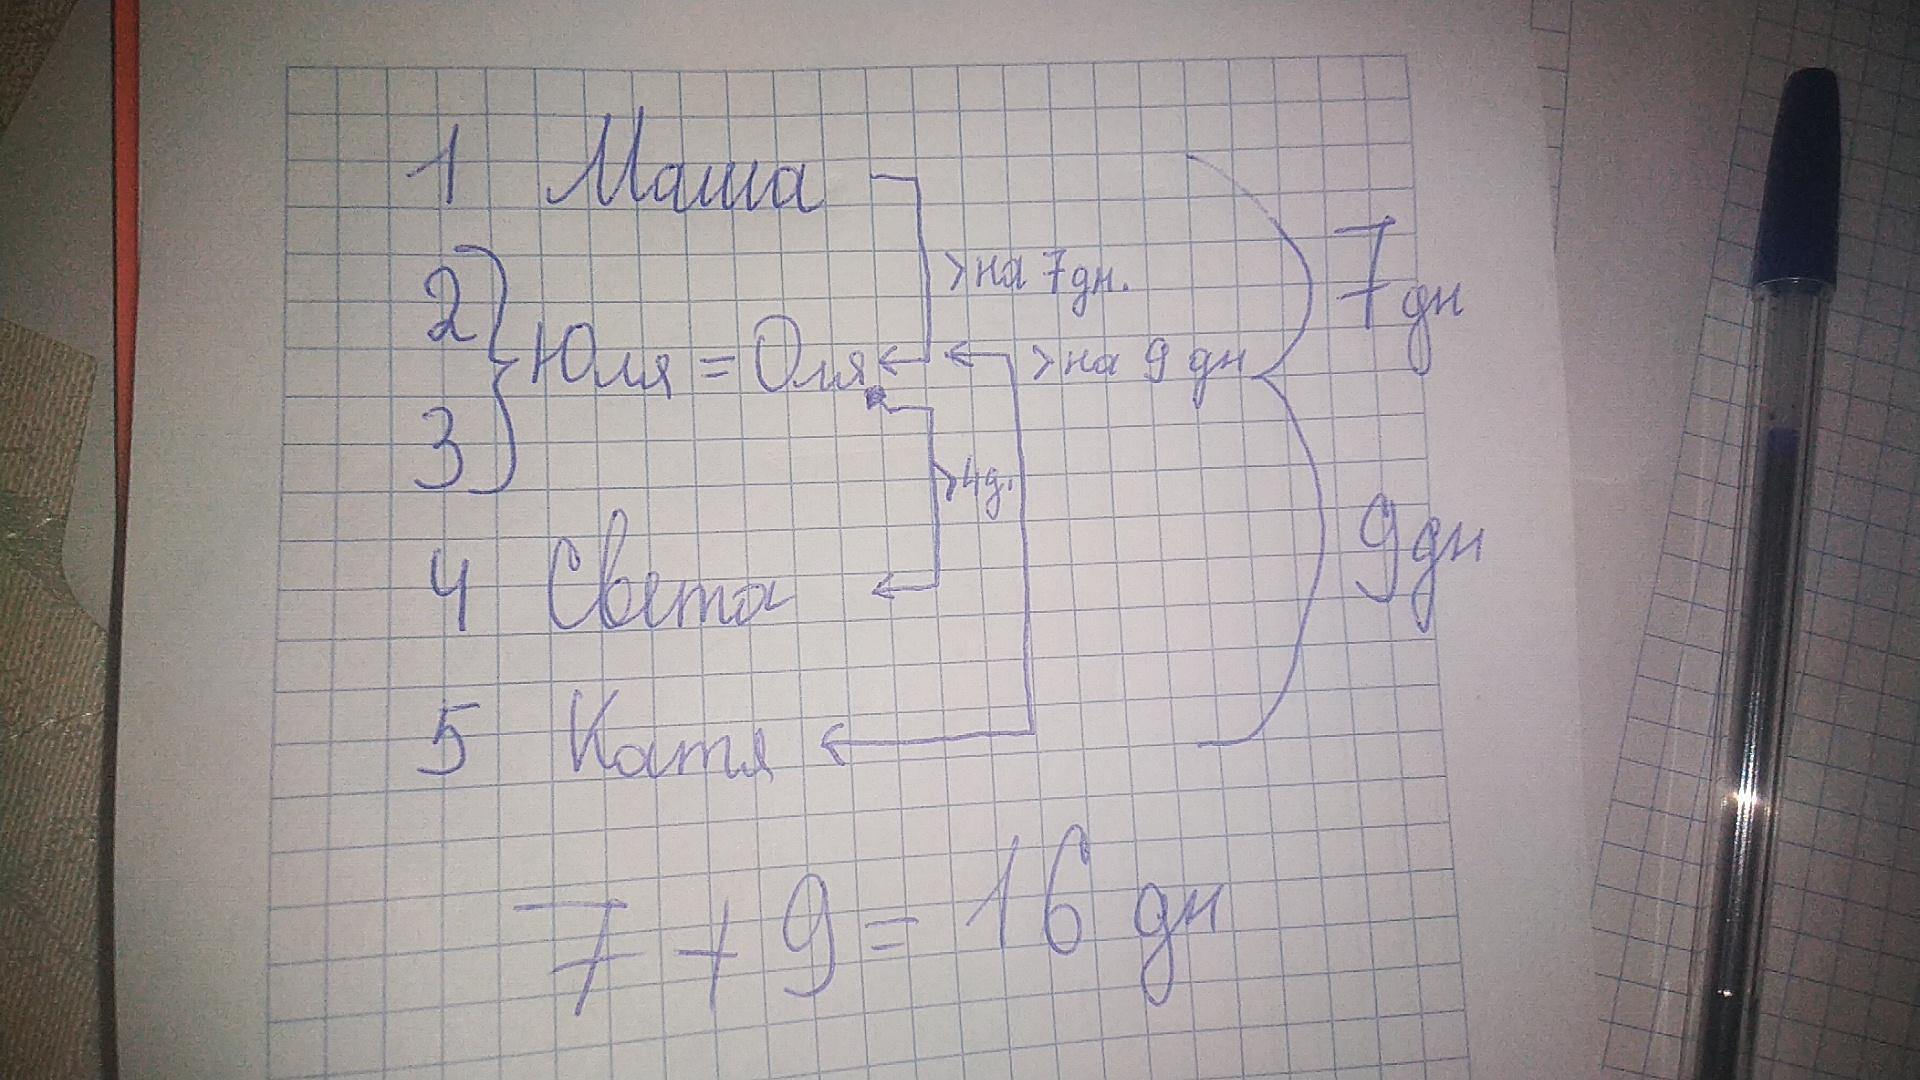 1 Маша
>на 7 дн.
7 дн
2
Юля = Оля
>на 9 дн
3
>4д.
9 дн
4 Света
5 Катя
7 + 9 = 16 дн